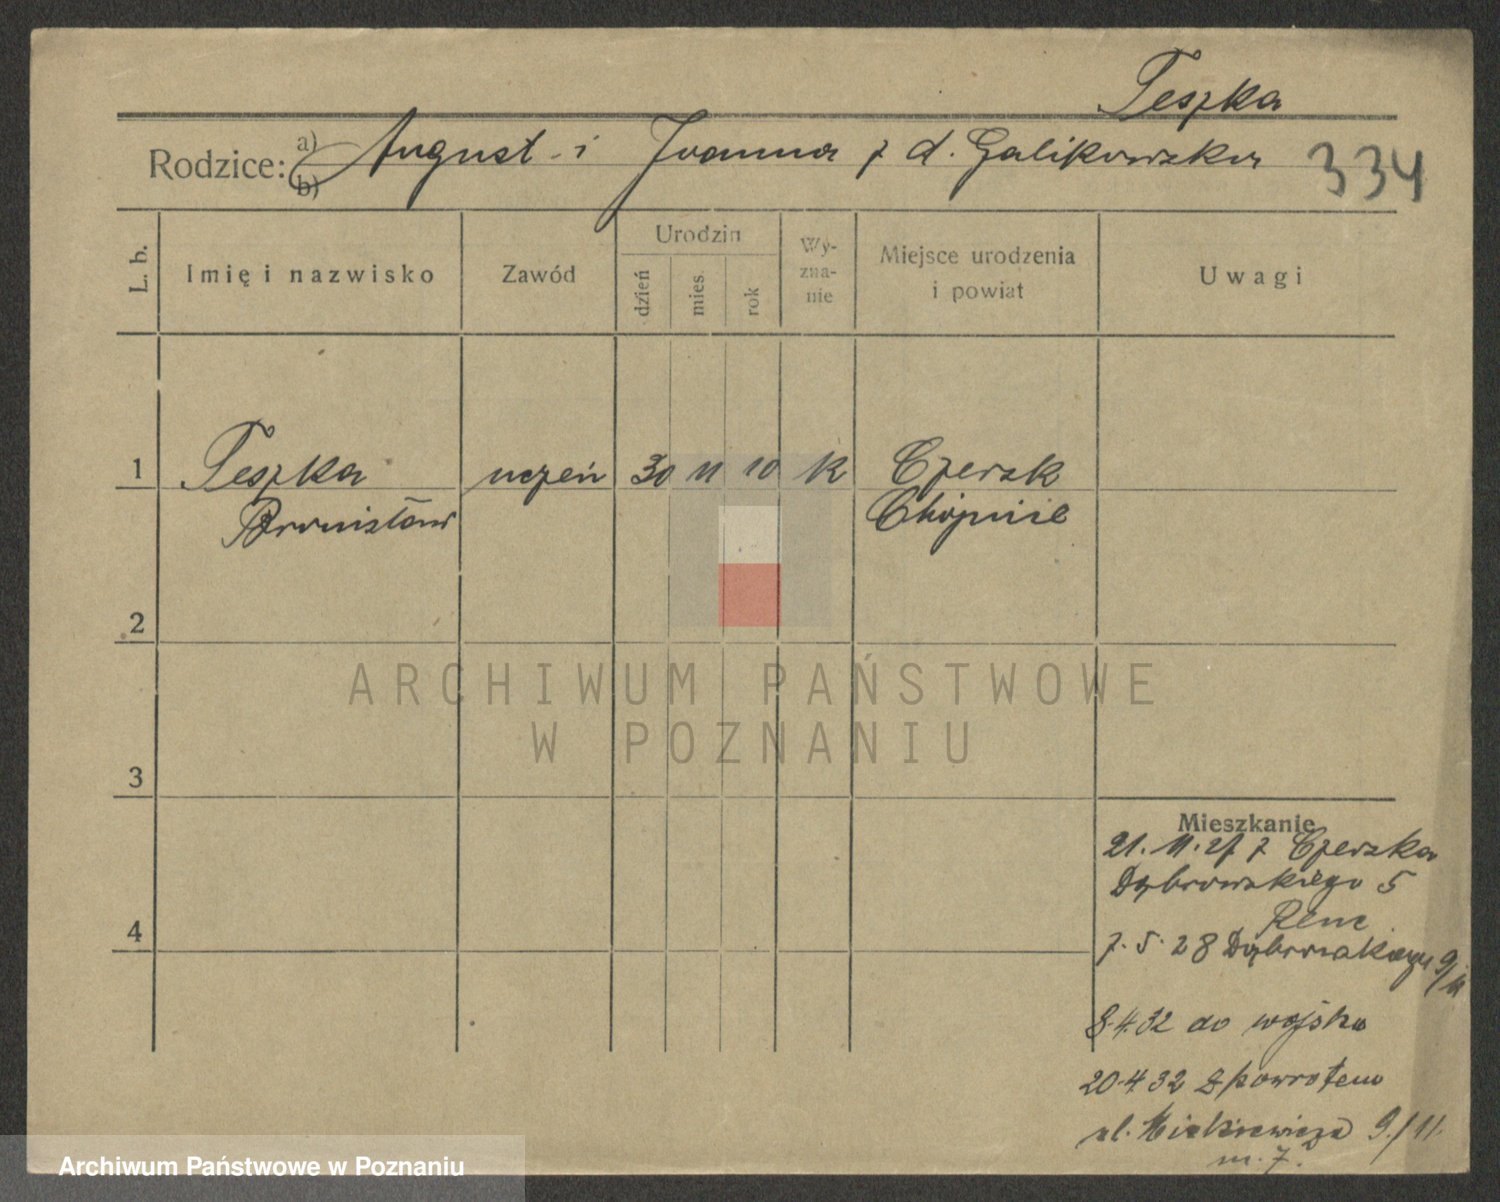 Teszka
Rodzice: a) August i Joanna z d. Galikowska 334
b)
L. b.
Imię i nazwisko
Zawód
Urodzin
dzień
mies.
rok
Wy-
zna-
nie
Miejsce urodzenia
i powiat
Uwagi
1 Teszka uczeń 30 11 10 k Czersk
Bronisław Chojnice
2
3
4
ARCHIWUM PAŃSTWOWE
W POZNANIU
Mieszkanie
21. 11. 27 z Czerska
Dąbrowskiego 5
7. 5. 28 Dąbrowskiego 9/11
8.4.32 do wojska
20.4.32 z powrotem
ul. Mickiewicza 9/11.
m. 7.
Archiwum Państwowe w Poznaniu